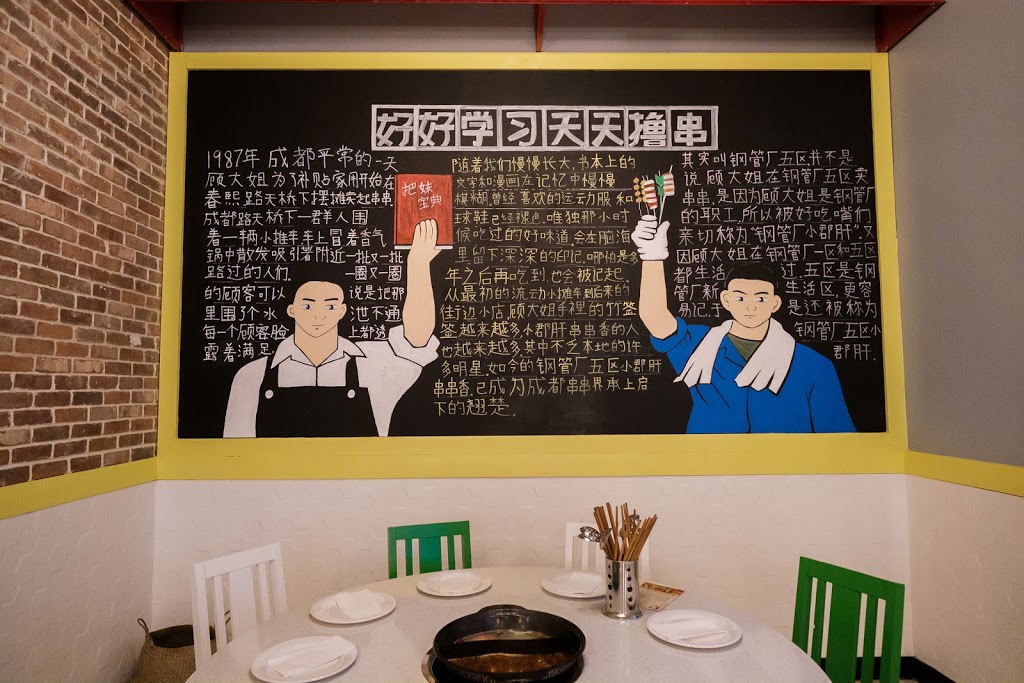 好好学习天天撸串
1987年成都平常的一天
顾大姐为了补贴家用开始在
春熙路天桥下摆摊卖起串串,
成都路天桥下一群人围
着一辆小推车车上冒着香气
锅中散发吸引著附近一批又一批
路过的人们. 一圈又一圈
的顾客可以 说是把那
里围了个水 泄不通
每一个顾客脸 上都透
露着满足.
把妹
宝典
随着我们慢慢长大,书本上的
文字和漫画在记忆中慢慢
模糊,曾经喜欢的运动服和
球鞋已经褪色.唯独那小时
候吃过的好味道.会在脑海
里留下深深的印记,哪怕是多
年之后再吃到.也会被记起.
从最初的流动小摊车到后来的
街边小店,顾大姐手裡的竹签
签越来越多,小郡肝串串香的人
也越来越多.其中不乏本地的许
多明星.如今的钢管厂五区小郡肝
串串香.已成为成都串串界承上启
下的翘楚.
其实叫钢管厂五区并不是
说顾大姐在钢管厂五区卖
串串,是因为顾大姐是钢管厂
的职工,所以被好吃嘴们
亲切称为"钢管厂小郡肝".又
因顾大姐在钢管厂一区和五区
都生活 过,五区是钢
管厂新 生活区,更容
易记,于 是还被称为
钢管厂五区小
郡肝.